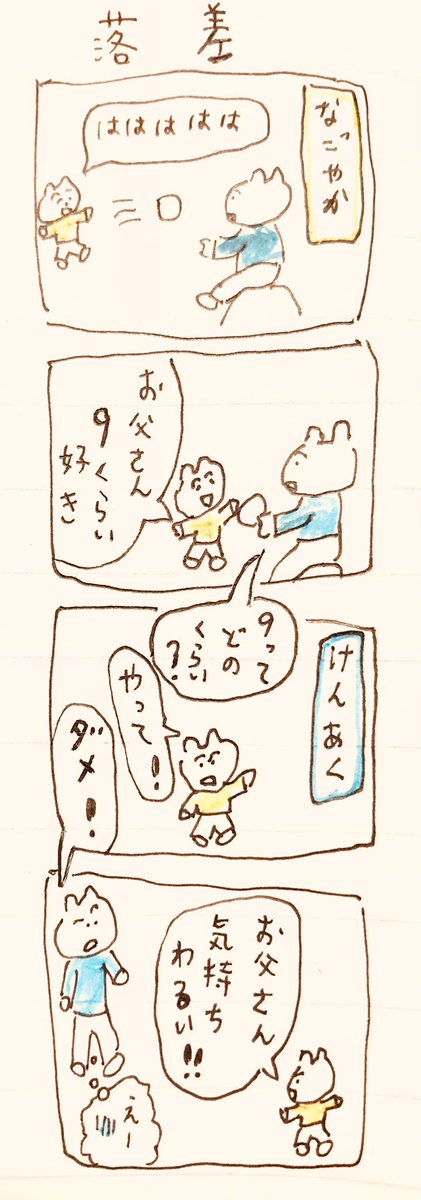 落差
なごやか
ははははは
お父さん
9くらい
好き
けんあく
9って
どの
くらい?
やって!
ダメ!
お父さん
気持ち
わるい!!
えー